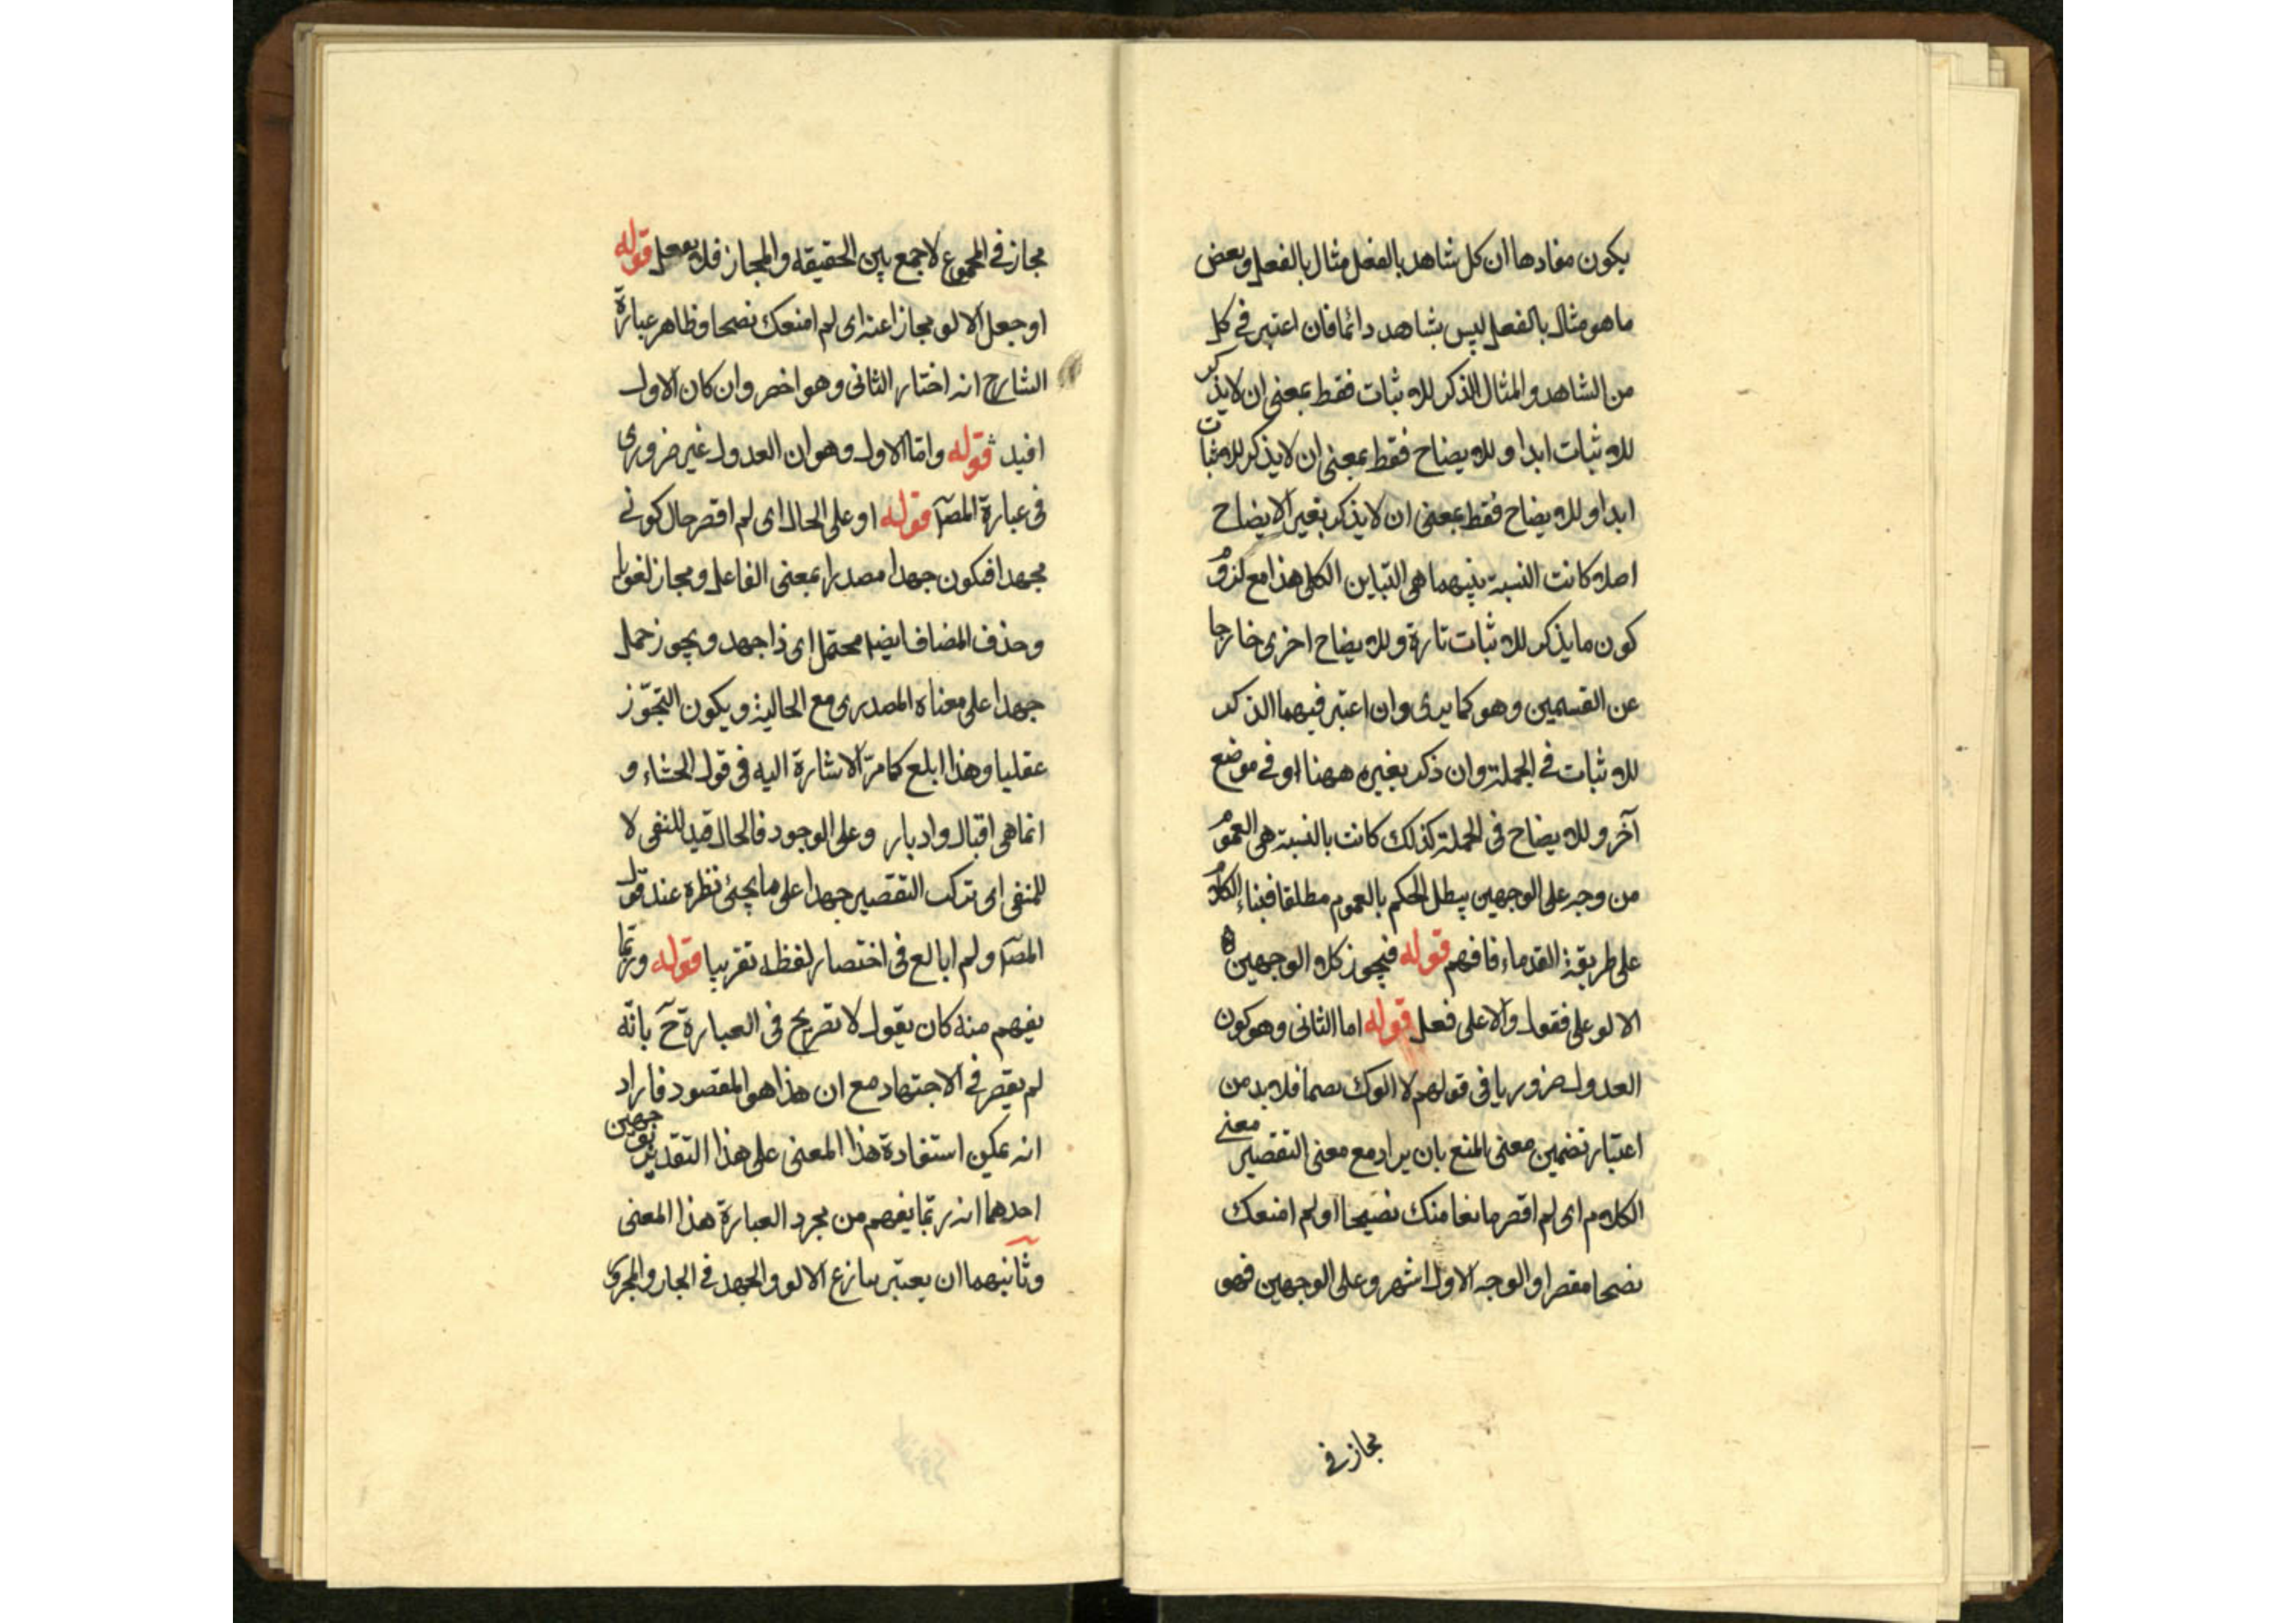 يكون مفادها ان كل شاهد بالفعل مثال بالفعل وبعض
ما هو مثال بالفعل ليس بشاهد دائما فان اعتبر في كل
من الشاهد والمثال الذكر للاثبات فقط بمعنى ان لا يذكر
للاثبات ابدا وللايضاح فقط بمعنى ان لا يذكر للاثبات
ابدا وللايضاح فقط بمعنى ان لا يذكر بغير الايضاح
اصلا كانت النسبة بينهما هي التباين الكلي هذا مع لزوم
كون ما يذكر للاثبات تارة وللايضاح اخرى خارجا
عن القسمين وهو كما يرى وان اعتبر فيهما الذكر
للاثبات في الجملة وان ذكر بغيره ههنا او في موضع
آخر وللايضاح في الجملة كذلك كانت بالنسبة هي العموم
من وجه على الوجهين يبطل الحكم بالعموم مطلقا فبناء الكلام
على طريقة القدماء فافهم قوله فيجوز كلا الوجهين
الالو على فقول والا على فعل قوله اما الثاني وهو كون
العدول ضروريا في قولهم لا الوك نصحا فلا بد من
اعتبار تضمين معنى المنع بان يراد مع معنى التقصير معنى
الكلام اى لم اقصر مانعا منك نصيحا او لم امنعك
نصحا مقصرا والوجه الاول اشهر وعلى الوجهين فهو
مجاز في
مجاز في المجموع لا جمع بين الحقيقة والمجاز فلا يفعل قوله
او جعل الالو مجازا عنه اى لم امنعك نصحا وظاهر عبارة
الشارح انه اختار الثانى وهو اخصر وان كان الاول
افيد قوله واما الاول وهو ان العدول غير ضرورى
فى عبارة المص قوله او على الحال اى لم اقصر حال كونى
مجهدا فيكون جهدا مصدرا بمعنى الفاعل ومجاز لغويا
وحذف المضاف ايضا محتمل اى ذا جهد ويجوز حمل
جهدا على معناه المصدرى مع الحالية ويكون التجوّز
عقليا وهذا ابلع كما مرّ الاشارة اليه فى قول الخنساء و
انما هى اقبال وادبار وعلى الوجود فالحال قيد للنفى لا
للمنفى اى تترك التقصير جهدا على ما يجئ نظره عند قول
المص ولم ابالع فى اختصار لفظه تقريبا قوله وربما
يفهم منه كان يقول لا تصريح فى العبارة ح بانه
لم يقصر في الاجتهاد مع ان هذا هو المقصود فاراد
انه يمكن استفادة هذا المعنى على هذا التقدير بوجهين
احدهما انه ربما يفهم من مجرد العبارة هذا المعنى
وثانيهما ان يعتبر تنازع الالو والجهد في الجار والمجرور